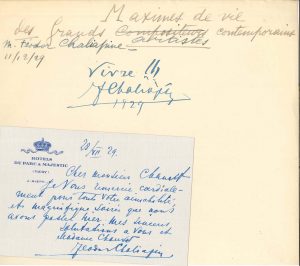 Maximes de vie
des Grands Compositeurs contemporains
Artistes
M. Feodor Chaliapine
11/12/29
Vivre !!!
F Chaliapin
1929
HOTELS
DU PARC & MAJESTIC
VICHY
20/VII 29.
Cher monsieur Chauvet
Je Vous remercie cordiale-
ment pour toute Votre amabilité
et magnifique soirée que nous
avons passée hier. Mes sincères
salutations à Vous et
madame Chauvet
Feodor Chaliapin